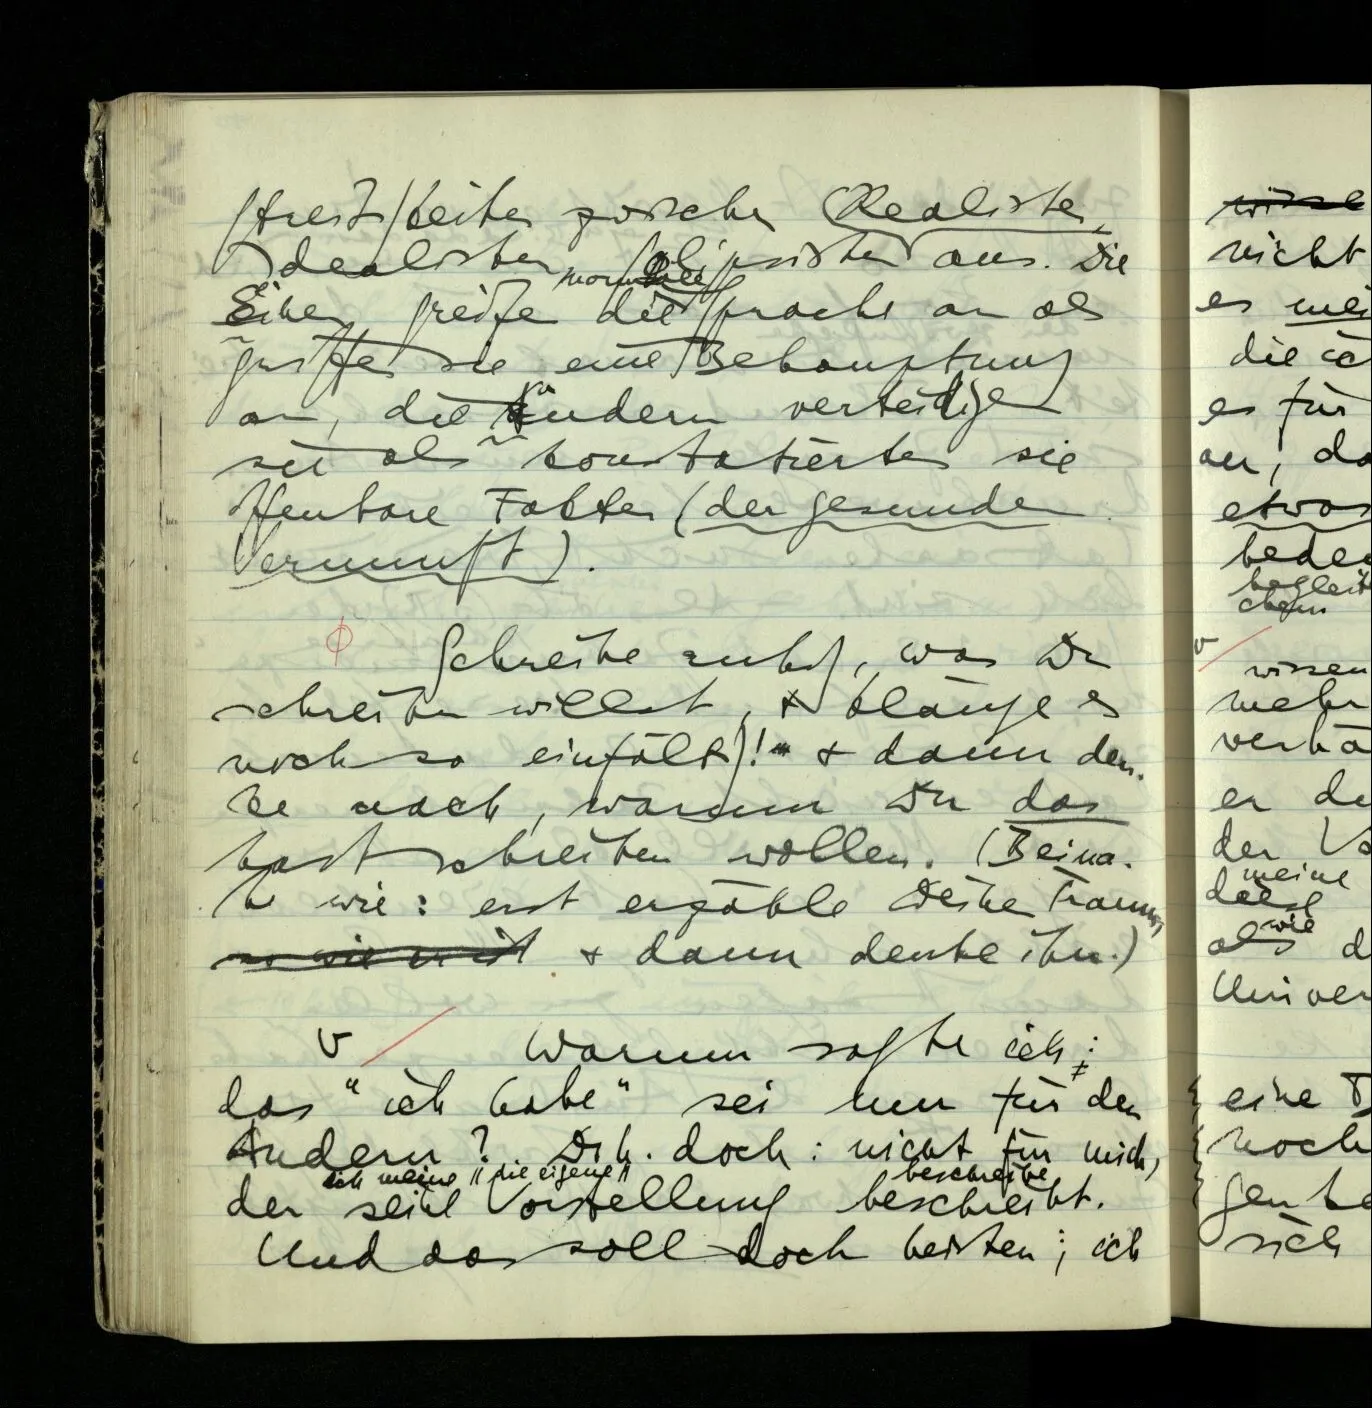 Streitigkeiten zwischen Realisten,
Idealisten, Solipsisten aus. Die
normale
Einen greifen die Sprache an als
griffen sie eine Behauptung
an, die Andern verteidigen
sie als konstatierten sie
offenbare Fakten (der gesunden
Vernunft).
Φ Schreibe ruhig, was Du
schreiben willst, & klänge es
noch so einfältig! & dann den-
ke nach, warum Du das
hast schreiben wollen. (Beina-
h wie: erst erzähle Deinen Traum,
so wie er ist & dann denke ihn.)
v / Warum sagte ich:
das "ich habe" sei nur für den
Andern? D.h. doch: nicht für mich,
ich meine "die eigene" beschreibe
der seine Vorstellung beschreibt.
Und das soll doch heißen; ich
wisse
nicht
es
die ich
es für
an, da
etwas
chem
v / wissen
mehr
er de
der Vo
meine
diese
wie
als d
Univer
eine
noch
sich